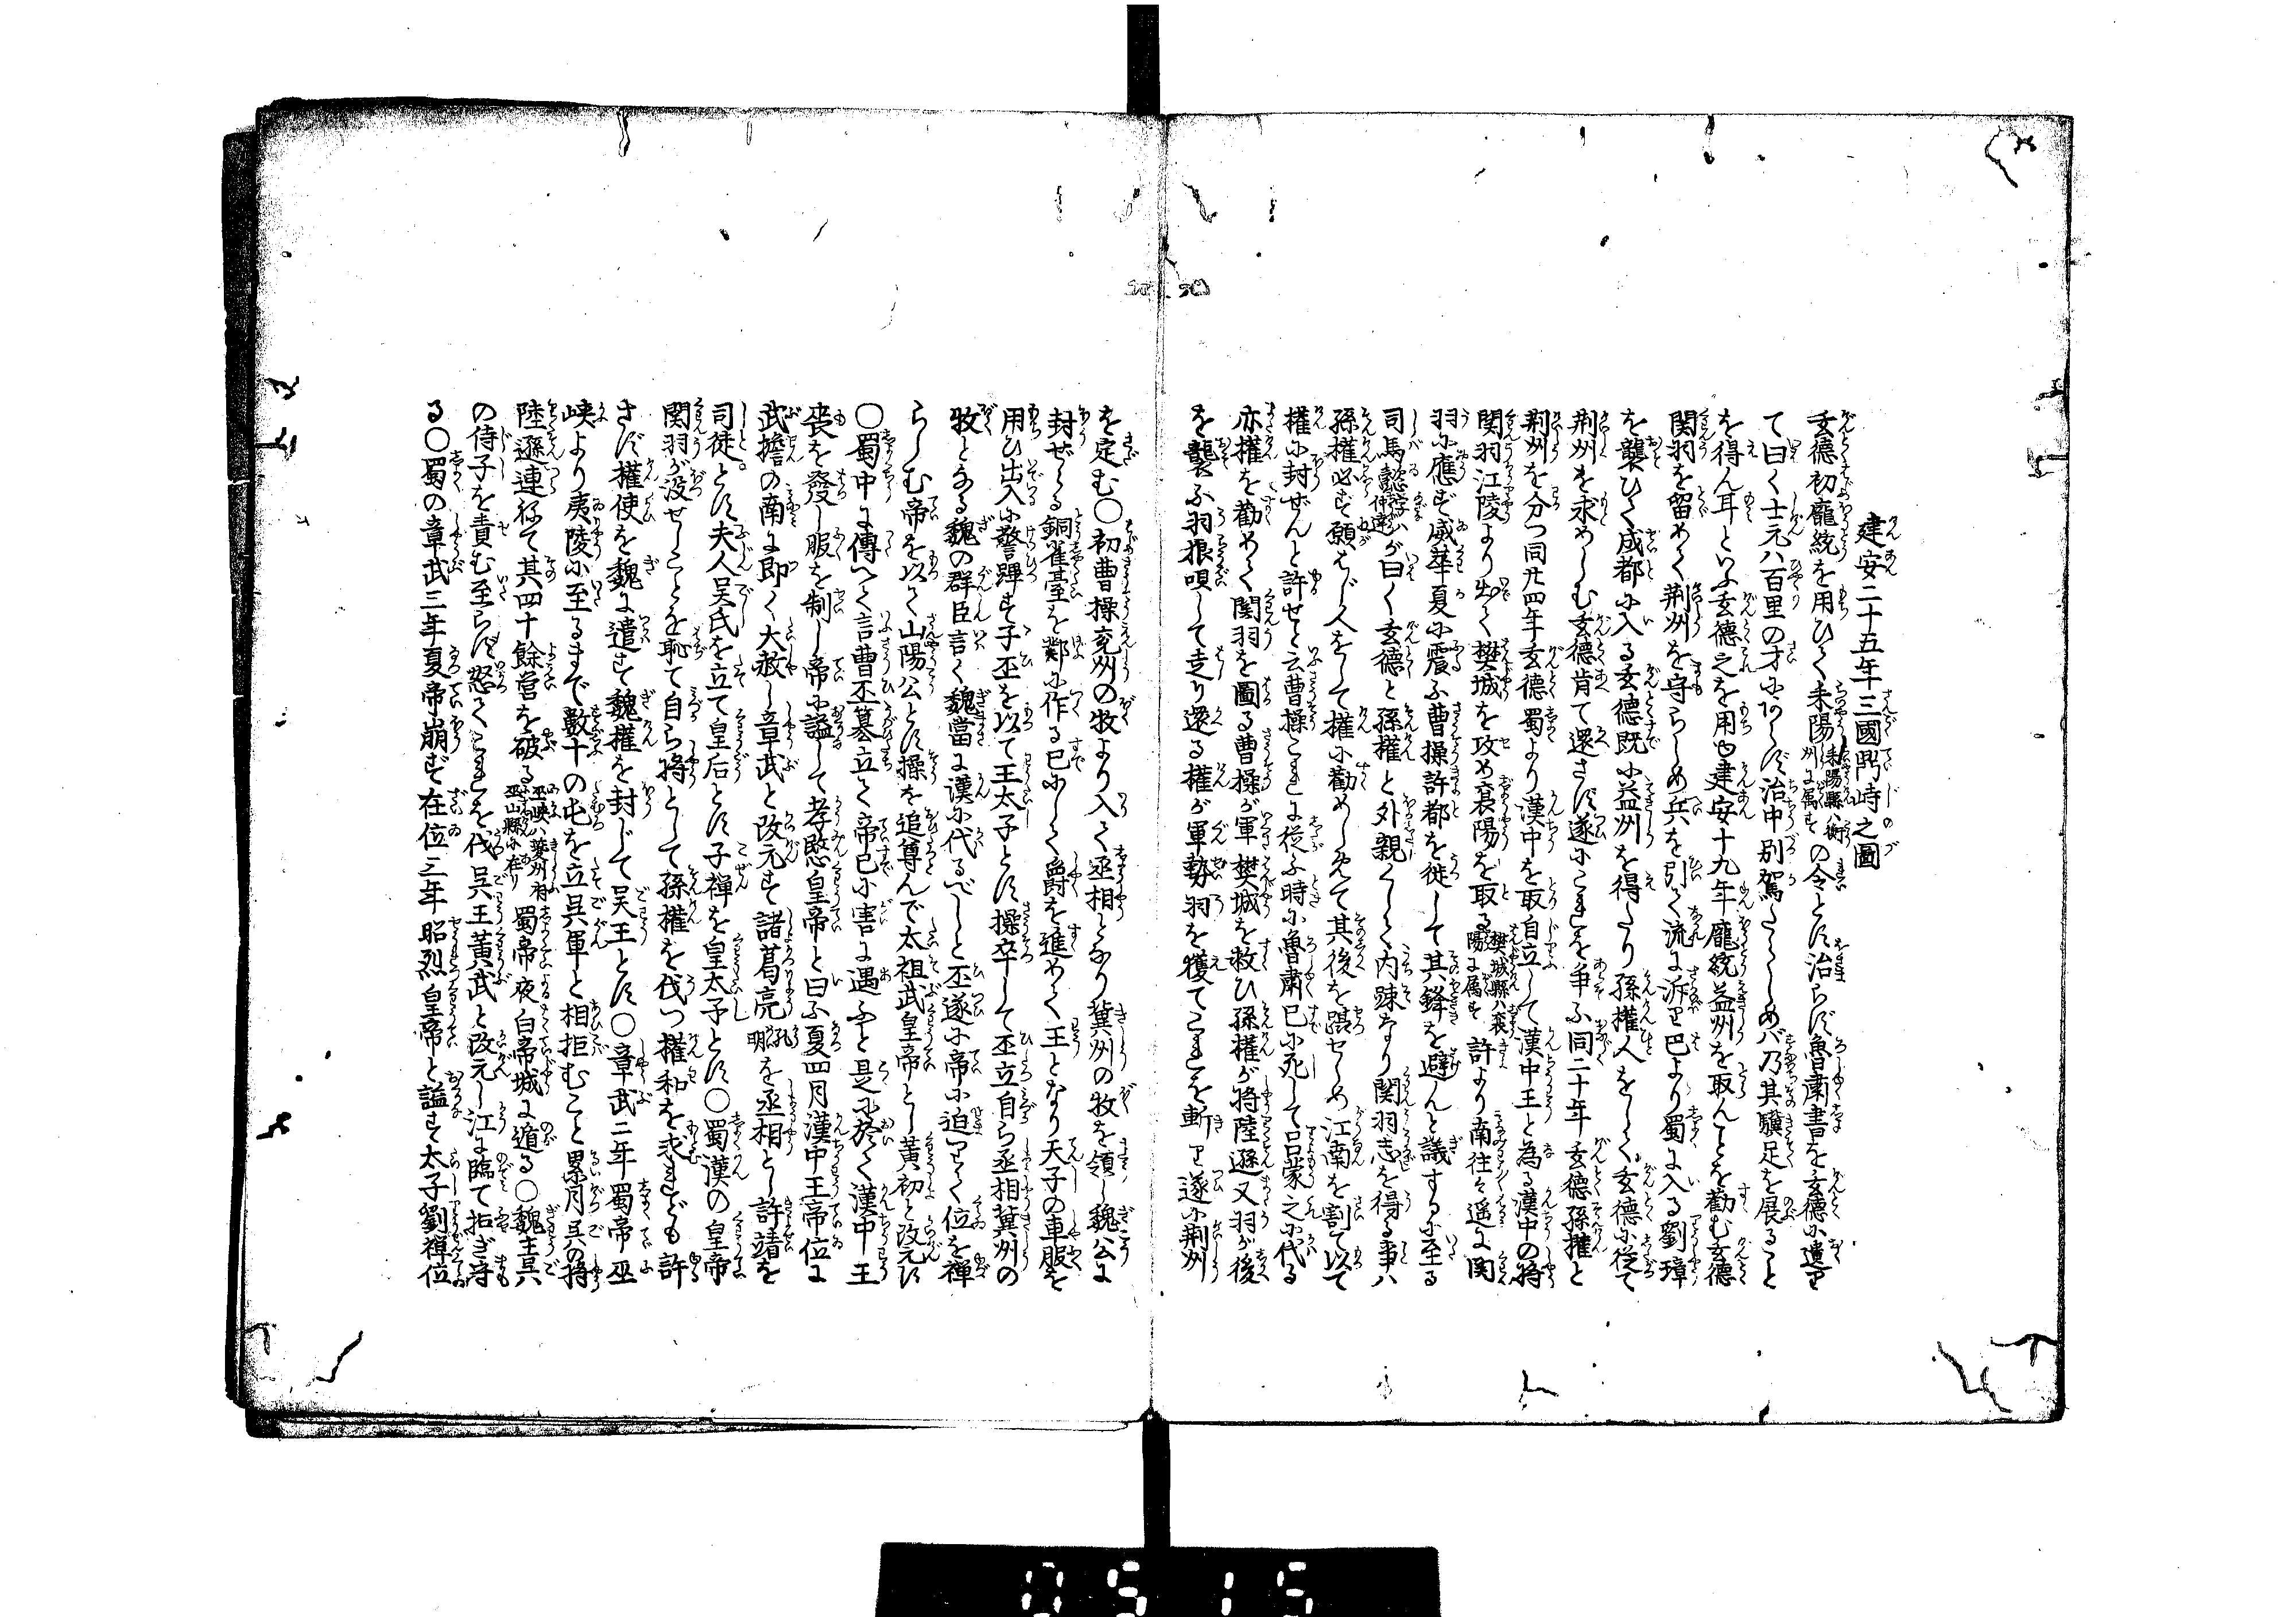 建安二十五年三國鬥峙之圖
玄德初龐統を用ひて耒陽耒陽縣ハ衡州に属すの令とす治らず魯肅書を玄德に遣りて
曰く士元ハ百里の才にあらず治中別駕たらしめバ乃其驥足を展ること
を得ん耳といふ玄德之を用ゆ建安十九年龐統益州を取んことを勸む玄德
関羽を留めて荆州を守らしめ兵を引て流に泝り巴より蜀に入る劉璋
を襲ひて成都に入る玄德既に益州を得たり孫權人をして玄德に從て
荆州を求めしむ玄德肯て還さず遂にこれを爭ふ同二十年玄德孫權と
荆州を分つ同廿四年玄德蜀より漢中を取自立して漢中王と為る漢中の将
関羽江陵より出て樊城を攻め襄陽を取る樊城縣ハ襄陽に属す許より南往々遥に関
羽に應ず威華夏に震ふ曹操許都を徙して其鋒を避んと議するに至る
司馬懿懿字ハ仲達が曰く玄德と孫權と外親くして内踈なり関羽志を得る事ハ
孫權必ず願はじ人をして權に勸めしめて其後を躡せしめ江南を割て以て
權に封ぜんと許せと云曹操これに從ふ時に魯肅已に死して呂蒙之に代る
亦權を勸めて関羽を圖る曹操が軍樊城を救ひ孫權が将陸遜又羽が後
を襲ふ羽狼唄して走り還る權が軍勢羽を獲てこれを斬り遂に荆州
を定む〇初曹操兖州の牧より入て丞相となり冀州の牧を領し魏公に
封ぜらる銅雀臺を鄴に作る已にして爵を進めて王となり天子の車服を
用ひ出入に警蹕す子丕を以て王太子とす操卒して丕立自ら丞相冀州の
牧となる魏の群臣言く魏當に漢に代るべしと丕遂に帝に迫りて位を禪
らしむ帝を以て山陽公とす操を追尊んで太祖武皇帝とし黄初と改元す
〇蜀中に傳へて言曹丕簒立て帝已に害に遇ふと是に於て漢中王
喪を發し服を制し帝に謚して孝愍皇帝と曰ふ夏四月漢中王帝位に
武擔の南に即く大赦し章武と改元す諸葛亮孔明を丞相とし許靖を
司徒とす夫人吴氏を立て皇后とす子禪を皇太子とす〇蜀漢の皇帝
関羽が没せしことを恥て自ら将として孫權を伐つ權和を求れども許
さず權使を魏に遣す魏權を封じて吴王とす〇章武二年蜀帝巫
峡より夷陵に至るまで數十の屯を立吴軍と相拒むこと累月吴の将
陸遜連ねて其四十餘営を破る巫峡ハ夔州府巫山縣に在り蜀帝夜白帝城に遁る〇魏主吴
の侍子を責む至らず怒てこれを伐吴王黄武と改元し江に臨て拒ぎ守
る〇蜀の章武三年夏帝崩ず在位三年昭烈皇帝と謚す太子劉禪位
0515